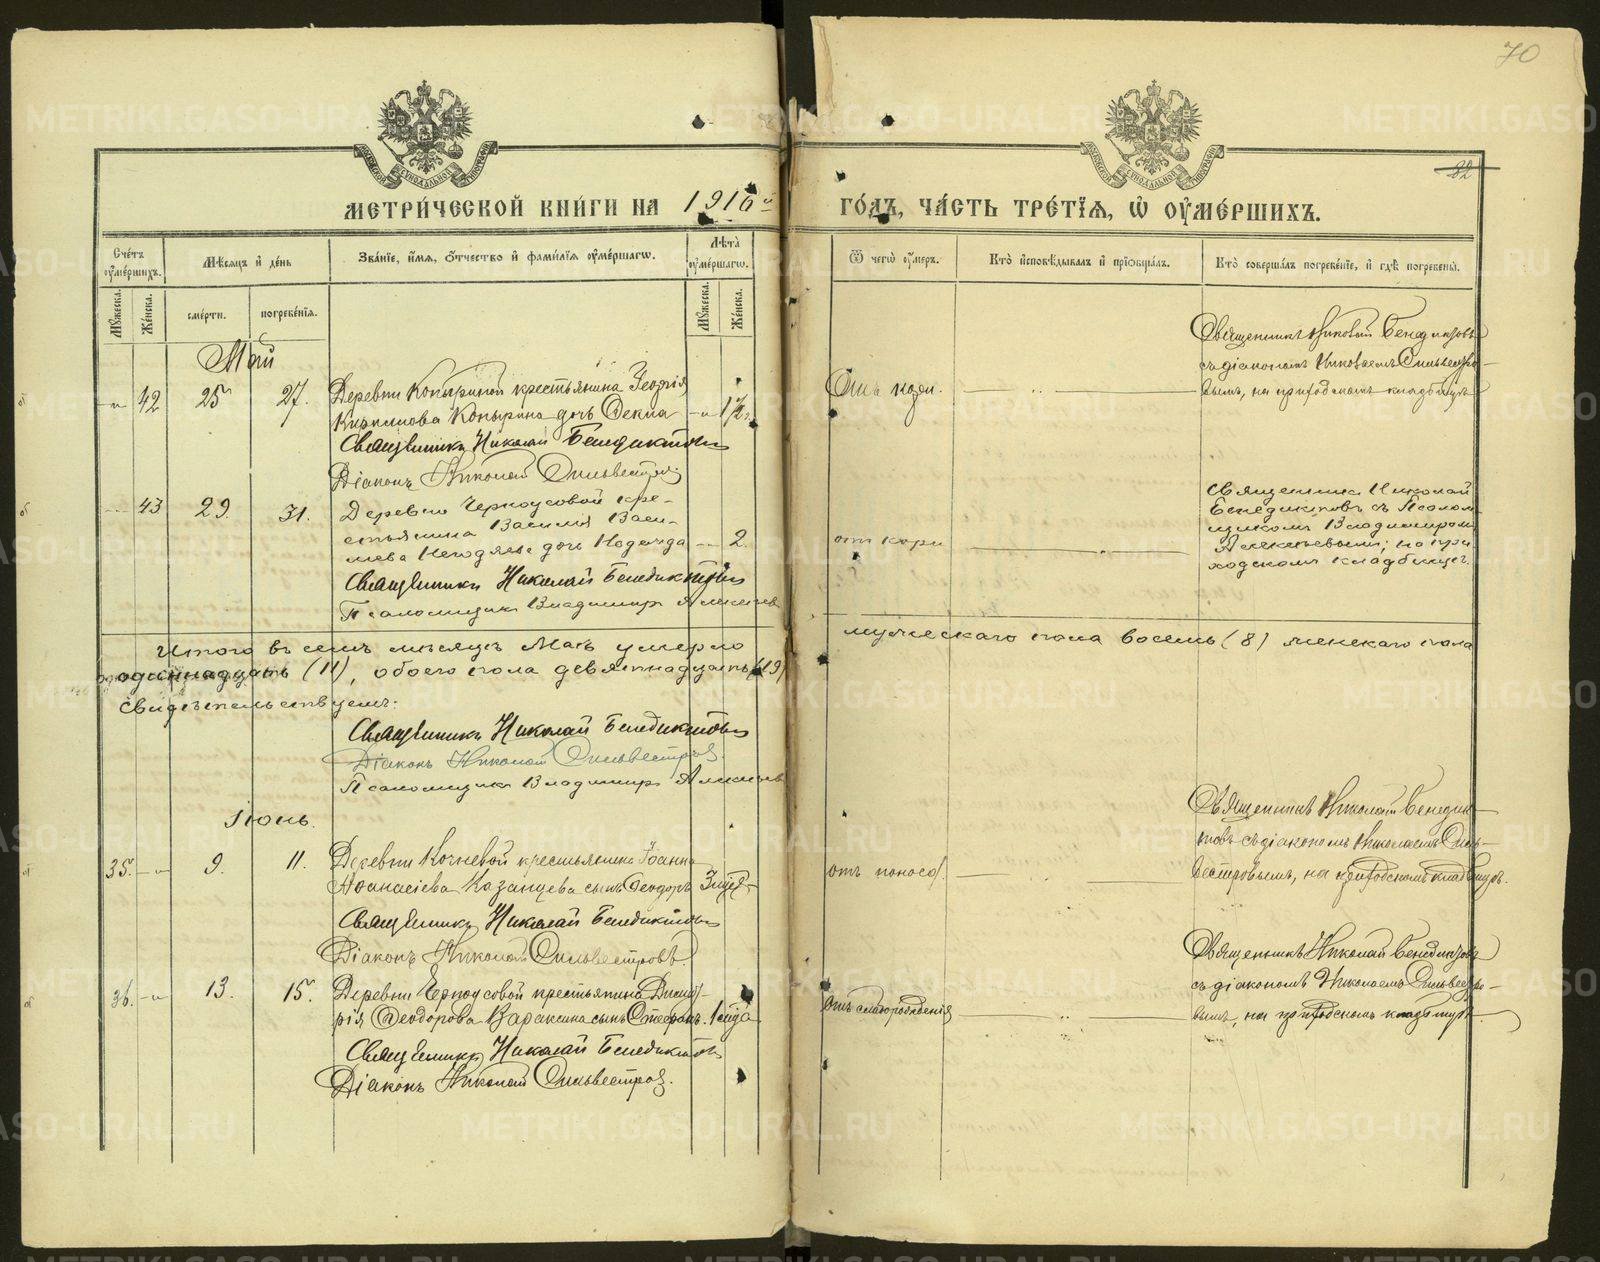 70
82
МЕТРИ́ЧЕСКОЙ КНИ́ГИ НА 1916й ГО́ДЪ, ЧА́СТЬ ТРЕ́ТЇѦ, Ѡ ОУ҆МЕ́РШИХЪ.
Сче́тъ оу҆ме́ршихъ.
Мѣ́сѧцъ и҆ де́нь
Зва́нїе, и҆́мѧ, ѻ҆́тчество и҆ фами́лїѧ оу҆ме́ршагѡ.
Лѣ́та оу҆ме́ршагѡ.
Ѿ чегѡ̀ оу҆́меръ.
Кто̀ и҆сповѣ́дывалъ и҆ прїѡбща́лъ.
Кто̀ соверша́лъ погребе́нїе, и҆ гдѣ̀ погребены̀.
Мꙋ́жеска.
Же́нска.
сме́рти.
погребе́нїѧ.
Мꙋ́жеска.
Же́нска.
Май
42 25 27. Деревни Копыриной крестьянина Георгія
Копырина дочь Фекла 1½ г.
Священникъ Николай Бенедиктовъ
Діаконъ Николай Сильвестровъ
Отъ кори.
Священникъ Николай Бенедиктовъ
съ діакономъ Николаемъ Сильвестро-
вымъ, на приходскомъ кладбищѣ
43 29. 31. Деревни Черноусовой кре-
стьянина Василія Васи-
льева Негодяева дочь Надежда 2.
Священникъ Николай Бенедиктовъ
Псаломщикъ Владимиръ Алексѣевъ
отъ кори
Священникъ Николай
Бенедиктовъ съ Псалом-
щикомъ Владимиромъ
Алексѣевымъ; на при-
ходскомъ кладбищѣ.
Итого въ семъ мѣсяцѣ Маѣ умерло мужескаго пола восемь (8) женскаго пола
одиннадцать (11), обоего пола девятнадцать (19)
Свидѣтельствуемъ:
Священникъ Николай Бенедиктовъ
Діаконъ Николай Сильвестровъ
Псаломщикъ Владимиръ Алексѣевъ
Іюнь.
35. 9. 11. Деревни Кочневой крестьянина Іоанна
Аѳанасіева Казанцева сынъ Ѳеодоръ 3 мѣс.
Священникъ Николай Бенедиктовъ
Діаконъ Николай Сильвестровъ.
отъ поноса.
Священникъ Николай Бенедик-
товъ съ діакономъ Николаемъ Силь-
вестровымъ, на приходскомъ кладбищѣ.
36. 13. 15. Деревни Черноусовой крестьянина Димит-
рія Ѳеодорова Вараксина сынъ Стефанъ.
Священникъ Николай Бенедиктовъ
Діаконъ Николай Сильвестровъ.
Отъ слаборожденія
Священникъ Николай Бенедиктовъ
съ діакономъ Николаемъ Сильвестро-
вымъ, на приходскомъ кладбищѣ
METRIKI.GASO-URAL.RU